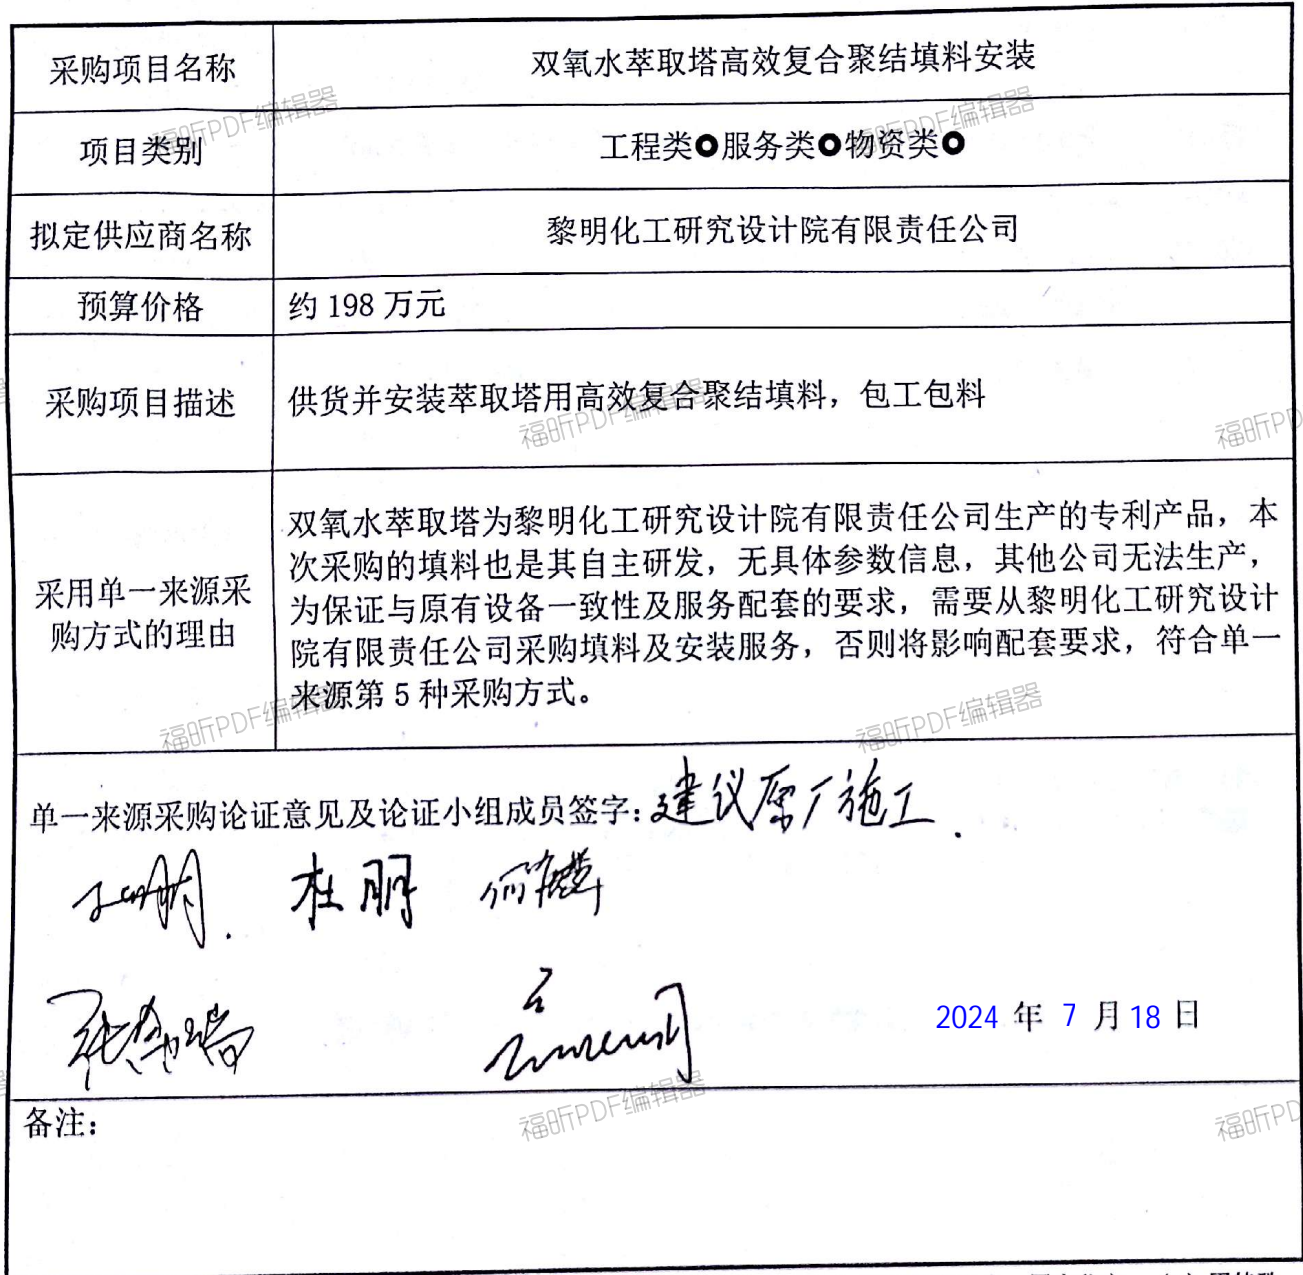 采购项目名称
双氧水萃取塔高效复合聚结填料安装
项目类别
工程类 服务类 物资类
拟定供应商名称
黎明化工研究设计院有限责任公司
预算价格
约 198 万元
采购项目描述
供货并安装萃取塔用高效复合聚结填料，包工包料
采用单一来源采
购方式的理由
双氧水萃取塔为黎明化工研究设计院有限责任公司生产的专利产品，本
次采购的填料也是其自主研发，无具体参数信息，其他公司无法生产，
为保证与原有设备一致性及服务配套的要求，需要从黎明化工研究设计
院有限责任公司采购填料及安装服务，否则将影响配套要求，符合单一
来源第 5 种采购方式。
单一来源采购论证意见及论证小组成员签字：建议原厂施工.
杜朋
2024 年 7 月 18 日
备注：
福昕PDF编辑器
福昕PDF编辑器
福昕PDF编辑器
福昕PD
福昕PDF编辑器
福昕PDF编辑器
福昕PDF编辑器
福昕PD